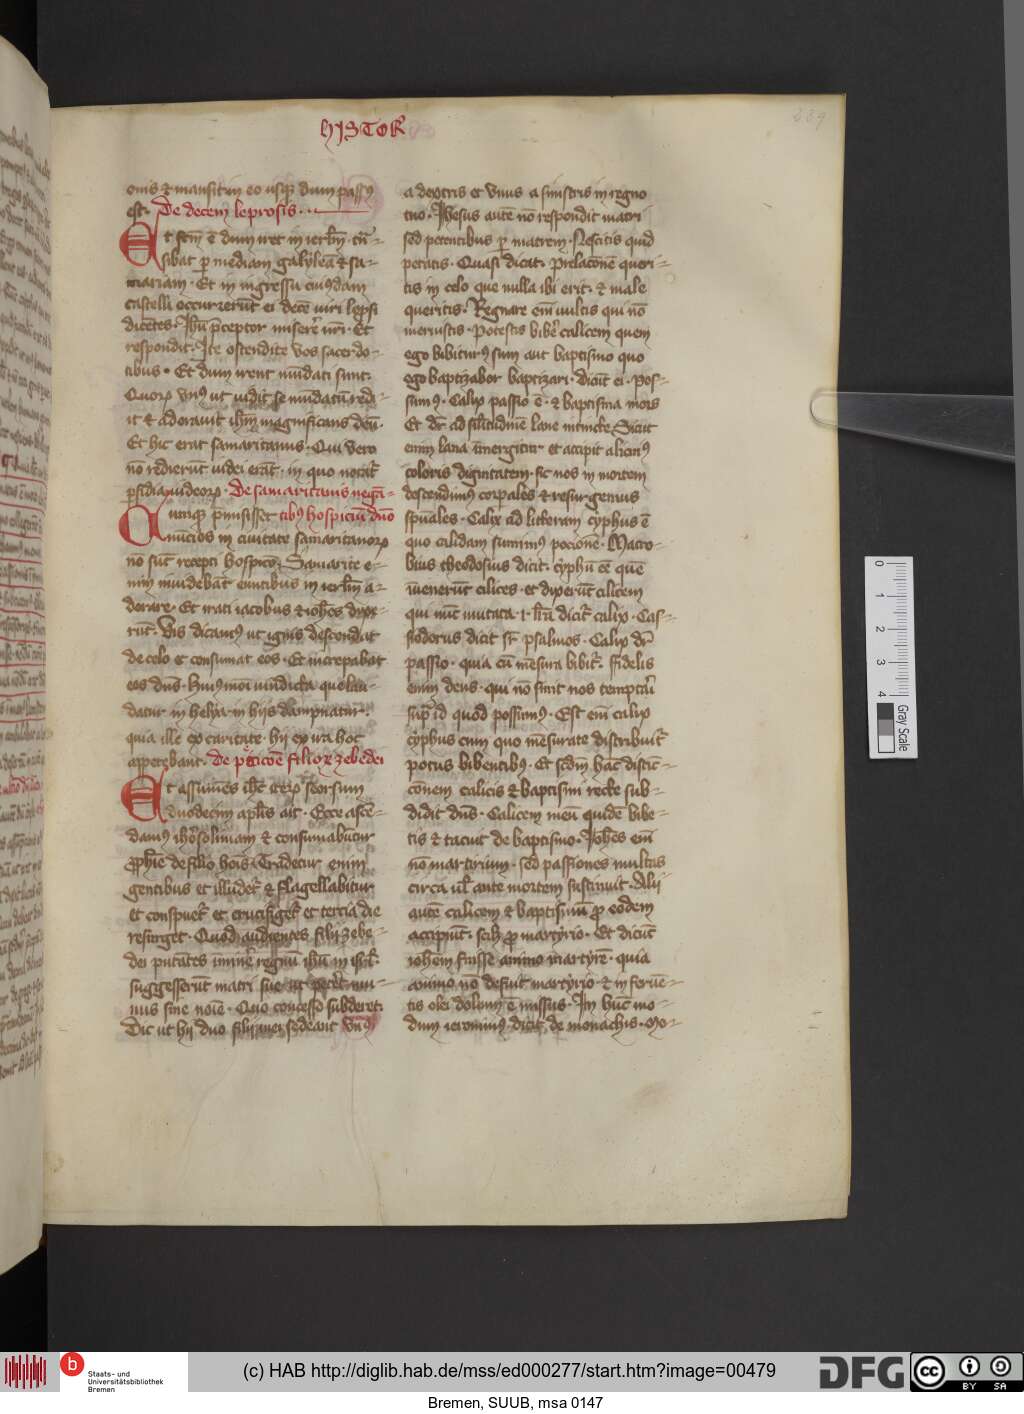 HISTOR
239
onis ⁊ mansit in eo usq dum passꝯ
est. De decem leprosis
Et fcm ē dum iret in ierlm. tn̄-
sibat p mediam galyleā ⁊ sa-
mariam. Et in ingressu cuiꝯdam
castelli occurrerūt ei decē viri lepsi
dicētes. Ihu pceptor miserē nri. Et
respondit. Ite ostendite vos sacerdo-
tibus. Et dum irent mūdati sunt.
Quoꝝ vnꝯ ut vidit se mūdatū redi-
it ⁊ adoravit ihm magnificans deū.
Et hic erat samaritanus. Qui vero
nō redierūt iudei erāt. in quo notat
pfidia iudeoꝝ. De samaritanis negā-
Cumq pmisisset tibꝯ hospiciū dno
nūcios in civitate samaritanoꝝ
nō sūt recepti hospicio. Samarite e-
nim invidebāt euntibus in ierlm a-
dorare. Et irati iacobus ⁊ iohes dixe-
rūt. Vis dicamꝯ ut ignis descendat
de celo et consumat eos. Et increpabat
eos dns. Huiꝯmoi vindicta que lau-
datur in helya in hijs dampnatur.
quia ille ex caritate. hij ex ira hoc
appetebant. De peticōe filioꝝ zebedei
Et assumēs ihc iterꝝ seorsum
duodecim aplis ait. Ecce ascē-
damꝯ iherosolimam ⁊ consumabūtur
prophie de filio hois. Tradetur enim
gentibus et illudet ⁊ flagellabitur
et conspuet et crucifiget et tercia die
resurget. Quod audientes filij zebe-
dei putātes iminē regnū ihu in isrl.
suggesserūt matri sue ut peteret mu-
nus sine noīe. Quo concesso subderet.
Dic ut hij duo filij mei sedeant vnꝯ
a dextris et vnus a sinistris in regno
tuo. Ihesus autē nō respondit matri
sed petentibus p matrem. Nescitis quid
petatis. Quasi dicat. prelacōnē queri-
tis in celo que nulla ibi erit. ⁊ male
queritis. Regnare em vultis qui nō
meruistis. Potestis bibe calicem quem
ego bibiturꝯ sum aut baptismo quo
ego baptizabor baptizari. dicūt ei. pos-
sumꝯ. Calix passio ē. ⁊ baptisma mors
Et dr ad silitudinē lane intincte. Sicut
enim lana immergitur et accipit alicuiꝯ
coloris dignitatem. sic nos in mortem
descendimꝯ corpales ⁊ resurgemus
spūales. Calix ad litteram cyphus ē
quo calidam sumimꝯ pocionē. Macro-
bius theodosius dicit. cyphū eē quē
iuvenerūt cilices. et dixerūt cilicem
qui nūc mutata .i. lra dicit calix. Cas-
siodorus dicit sr psalmos. Calix dr
passio. quia cū mēsura bibit. fidelis
enim deus. qui nō sinit nos temptari
supra id quod possumꝯ. Est em calix
cyphus cum quo mēsurate distribuit
potus bibentibꝯ. Et scdm hāc distic-
cōnem calicis ⁊ baptismi recte sub-
didit dns. Calicem meū quidē bibe-
tis ⁊ tacuit de baptismo. Iohes em
nō martirium. sed passiones multas
circa vl ante mortem sustinuit. Alij
autē calicem ⁊ baptismū pro eodem
accipiūt. scilz pro martyrio. Et dicūt
iohem fuisse animo martyrē. quia
animo nō defuit martyrio. ⁊ in ferūē-
tis olei dolium ē missus. In hūc mo-
dum ieronimꝯ dicit de monachis. No-
0 1 2 3 4
Gray Scale
b Staats- und
Universitätsbibliothek
Bremen
(c) HAB http://diglib.hab.de/mss/ed000277/start.htm?image=00479
DFG
cc BY SA
Bremen, SUUB, msa 0147